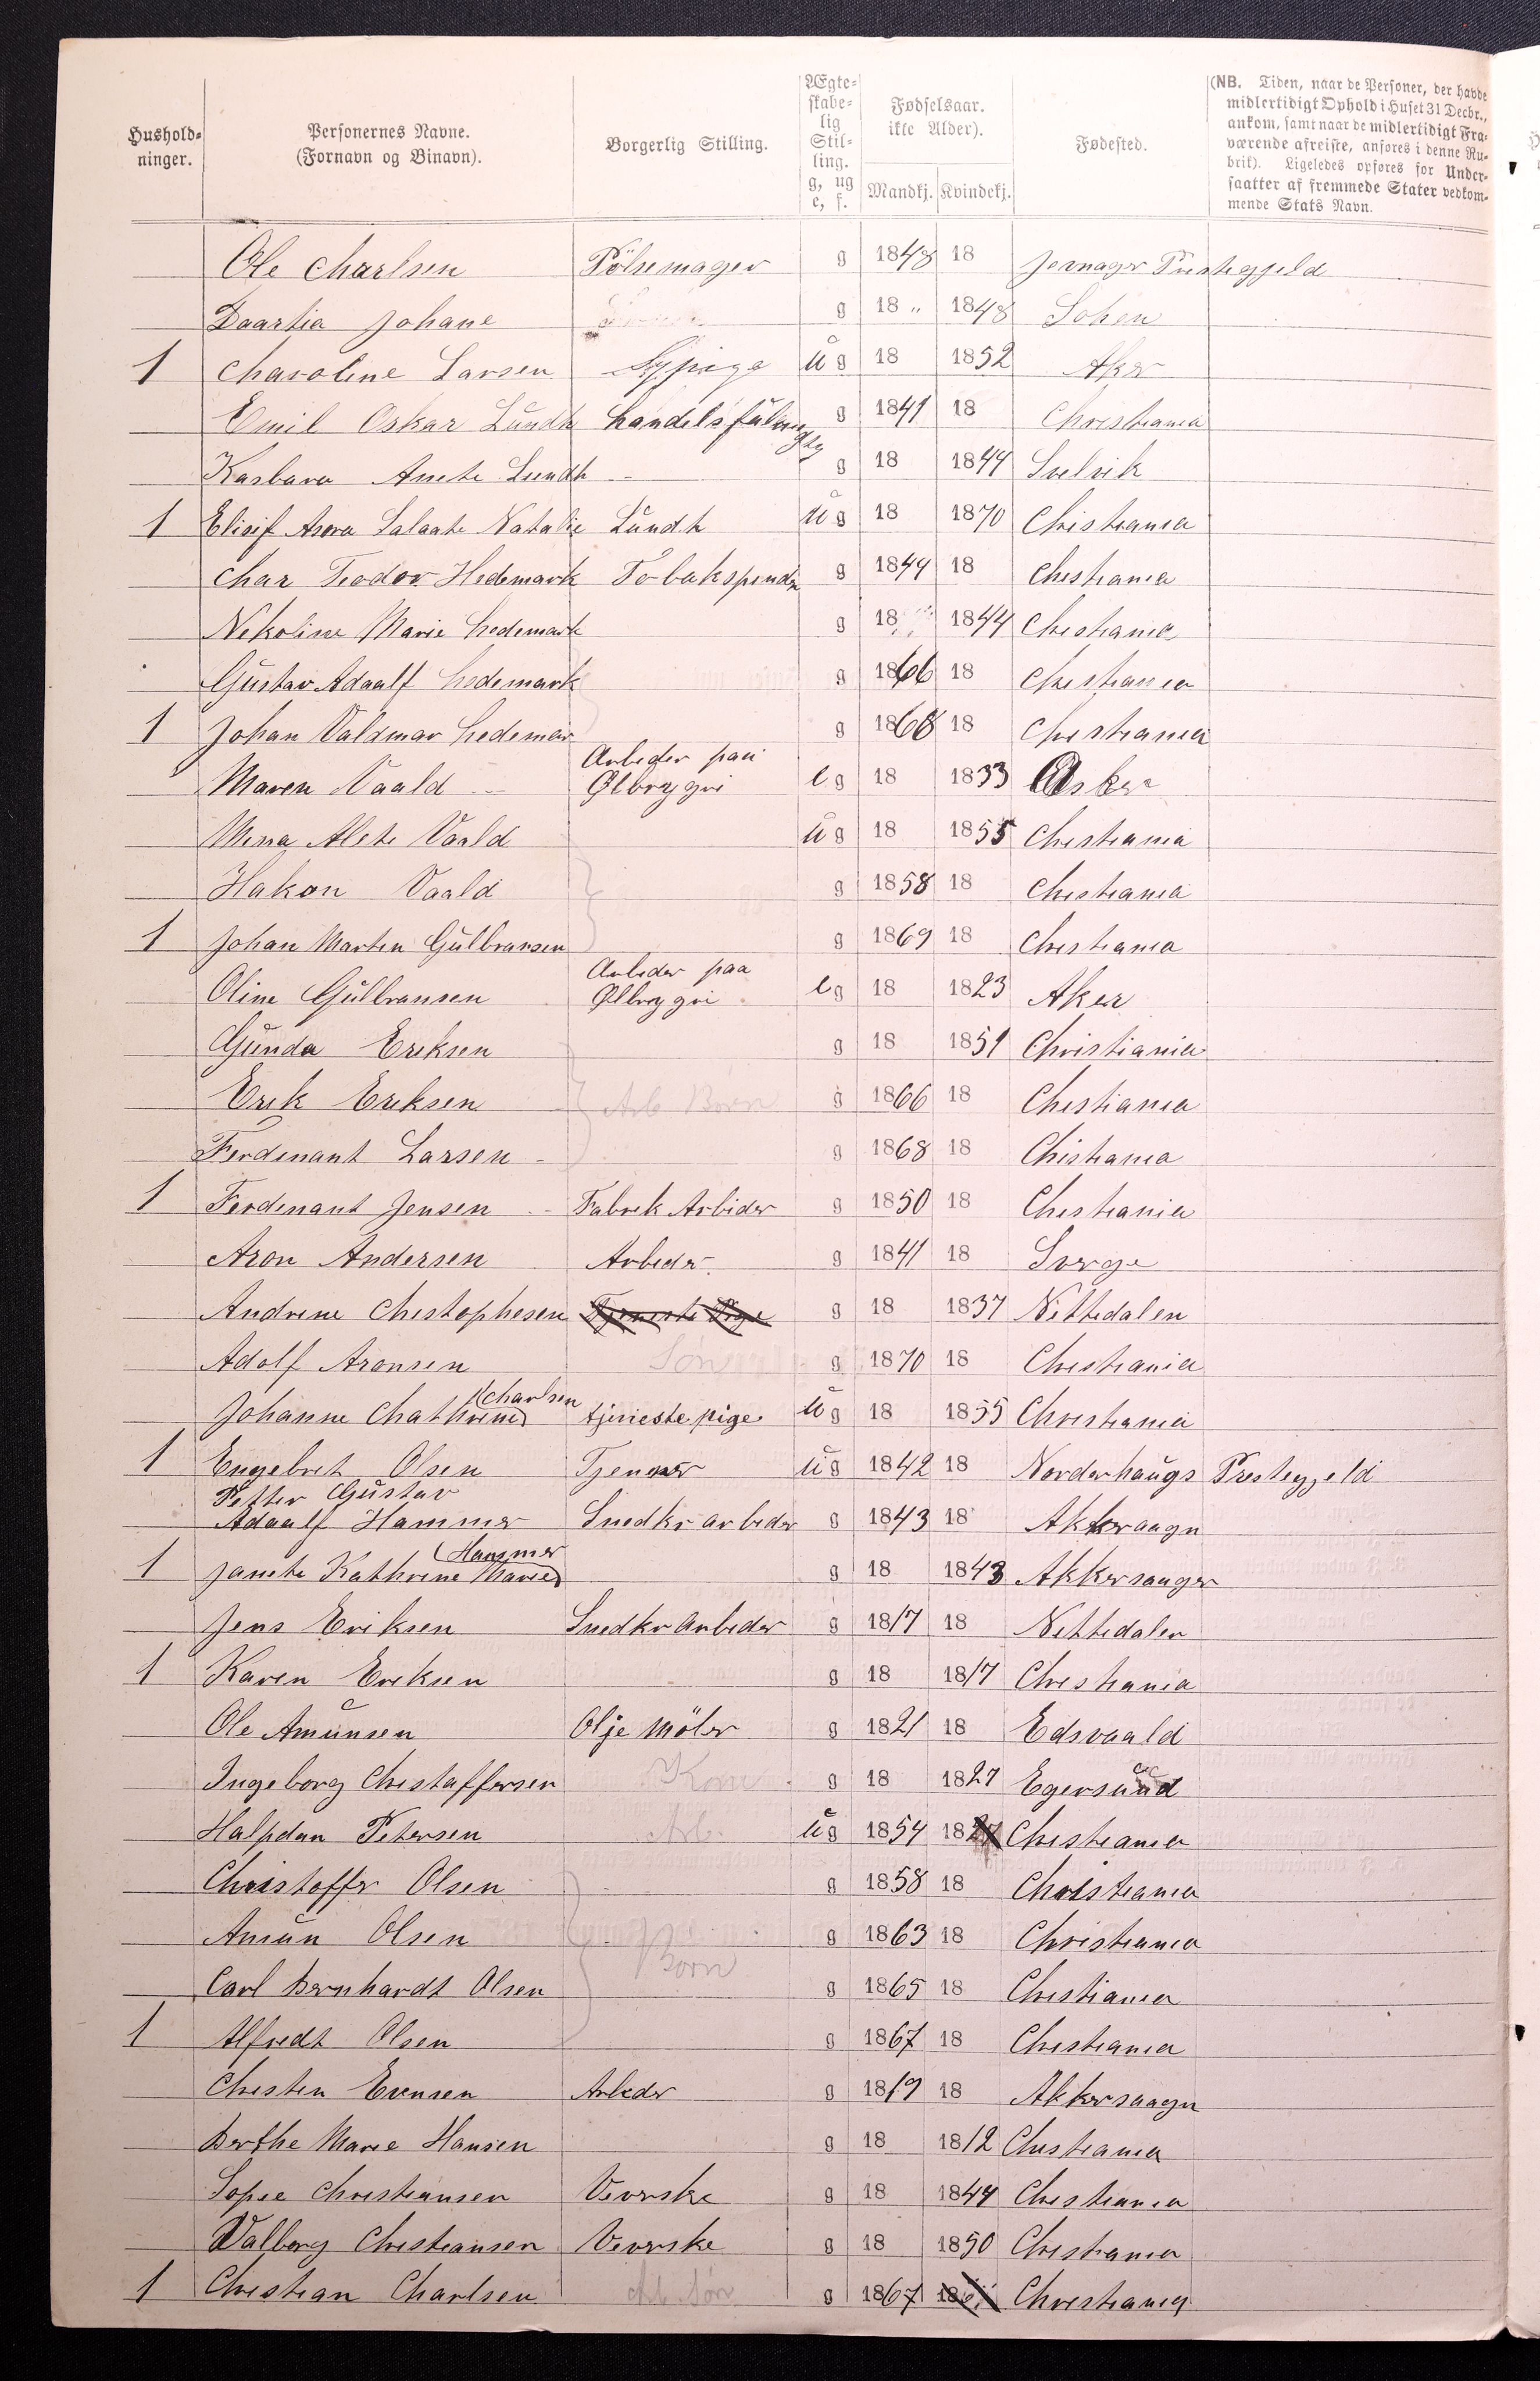 Hushold-
ninger.
Personernes Navne.
(Fornavn og Binavn).
Borgerlig Stilling.
Ægte-
skabe-
lig
Stil-
ling.
g, ug
e, f.
Fødselsaar.
ikke Alder).
Mandkj. Kvindekj.
Fødested.
(NB. Tiden, naar de Personer, der havde
midlertidigt Ophold i Huset 31 Decbr.,
ankom, samt naar de midlertidigt Fra-
værende afreiste, anføres i denne Ru-
brik). Ligeledes opføres for Under-
saatter af fremmede Stater vedkom-
mende Stats Navn.
Ole Charlsen Pölsemager g 1848 18 Jevnager Prestegjeld
Daartia Johane g 18 " 1848 Sohen
1 Charoline Larsen Sypige ug 18 1852 Aker
Emil Oskar Lundh handelsfulmegtg g 1841 18 Christiania
Karbara Anete Lundh g 18 1844 Svelvik
1 Elisif Asora Salaate Natalie Lundh ug 18 1870 Christiania
Char Teodor Hedemark Tobakspinder g 1844 18 Christiania
Nekoline Marie hedemark g 18 1844 Christiania
Gustav Adaalf hedemark g 1866 18 Christiania
1 Johan Valdmar hedemar g 1868 18 Christiania
Arbeder paa
Maren Vaald Ølbryggri eg 18 1833 Asker
Mina Alete Vaald ug 18 1855 Christiania
Hakon Vaald g 1858 18 Christiania
1 Johan Marten Gulbransen g 1869 18 Christiania
Arbeder paa
Oline Gulbransen Ølbryggri eg 18 1823 Aker
Gunda Ereksen g 18 1851 Christiania
Erek Ereksen Arb Børn g 1866 18 Christiania
Ferdenant Larsen g 1868 18 Christiania
1 Ferdenant Jensen Fabrek Arbider g 1850 18 Christiania
Aron Andersen Arbeder g 1841 18 Sverge
Andrene Chestophesen Tjeneste Pige g 18 1837 Nittedalen
Adolf Aronsen Søn g 1870 18 Christiania
Charlsen
Johanne Chathrine tjenestepige ug 18 1855 Christiania
1 Engebret Olsen Tjenner ug 1842 18 Norderhaugs Prestegjeld
Petter Gustav
Adaalf Hammer Snedkr arbeder g 1843 18 Akkersaagn
Hammer
1 Janete Kathrene Maree g 18 1843 Akkersaagn
Jens Eriksen Snedkr Arbeder g 1817 18 Nittedalen
1 Karen Ereksen g 18 1817 Christiania
Ole Amunsen Olje Möler g 1821 18 Edsvaald
Ingeborg Chestaffersen Kone g 18 1827 Egersund
Halpdan Petersen Arb. ug 1854 1827 Christiania
Christoffer Olsen g 1858 18 Christiania
Amun Olsen g 1863 18 Christiania
Børn
Carl Bernhardt Olsen g 1865 18 Christiania
1 Alfredt Olsen g 1867 18 Christiania
Chresten Evensen Arbeder g 1819 18 Akkersaagn
Berthe Maree Hansen g 18 1812 Christiania
Sopee Christiansen Veverske g 18 1844 Christiania
Valborg Christiansen Veverske g 18 1850 Christiania
1 Chrestian Charlsen Arb. Søn g 1867 18 Christiania